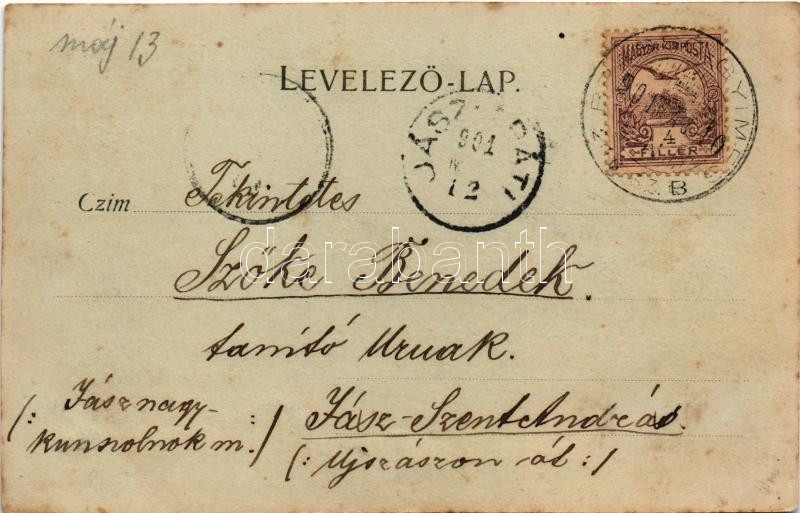 máj 13
LEVELEZŐ-LAP.
MAGYAR KIR. POSTA
4
FILLÉR
B
JÁSZ-APÁTI
901
12
Czim
Tekintetes
Szőke Benedek.
tanító Urnak.
(: Jásznagy-
kunszolnok m. :)
Jász-SzentAndrás.
(: Ujszászon át :)
darabanth